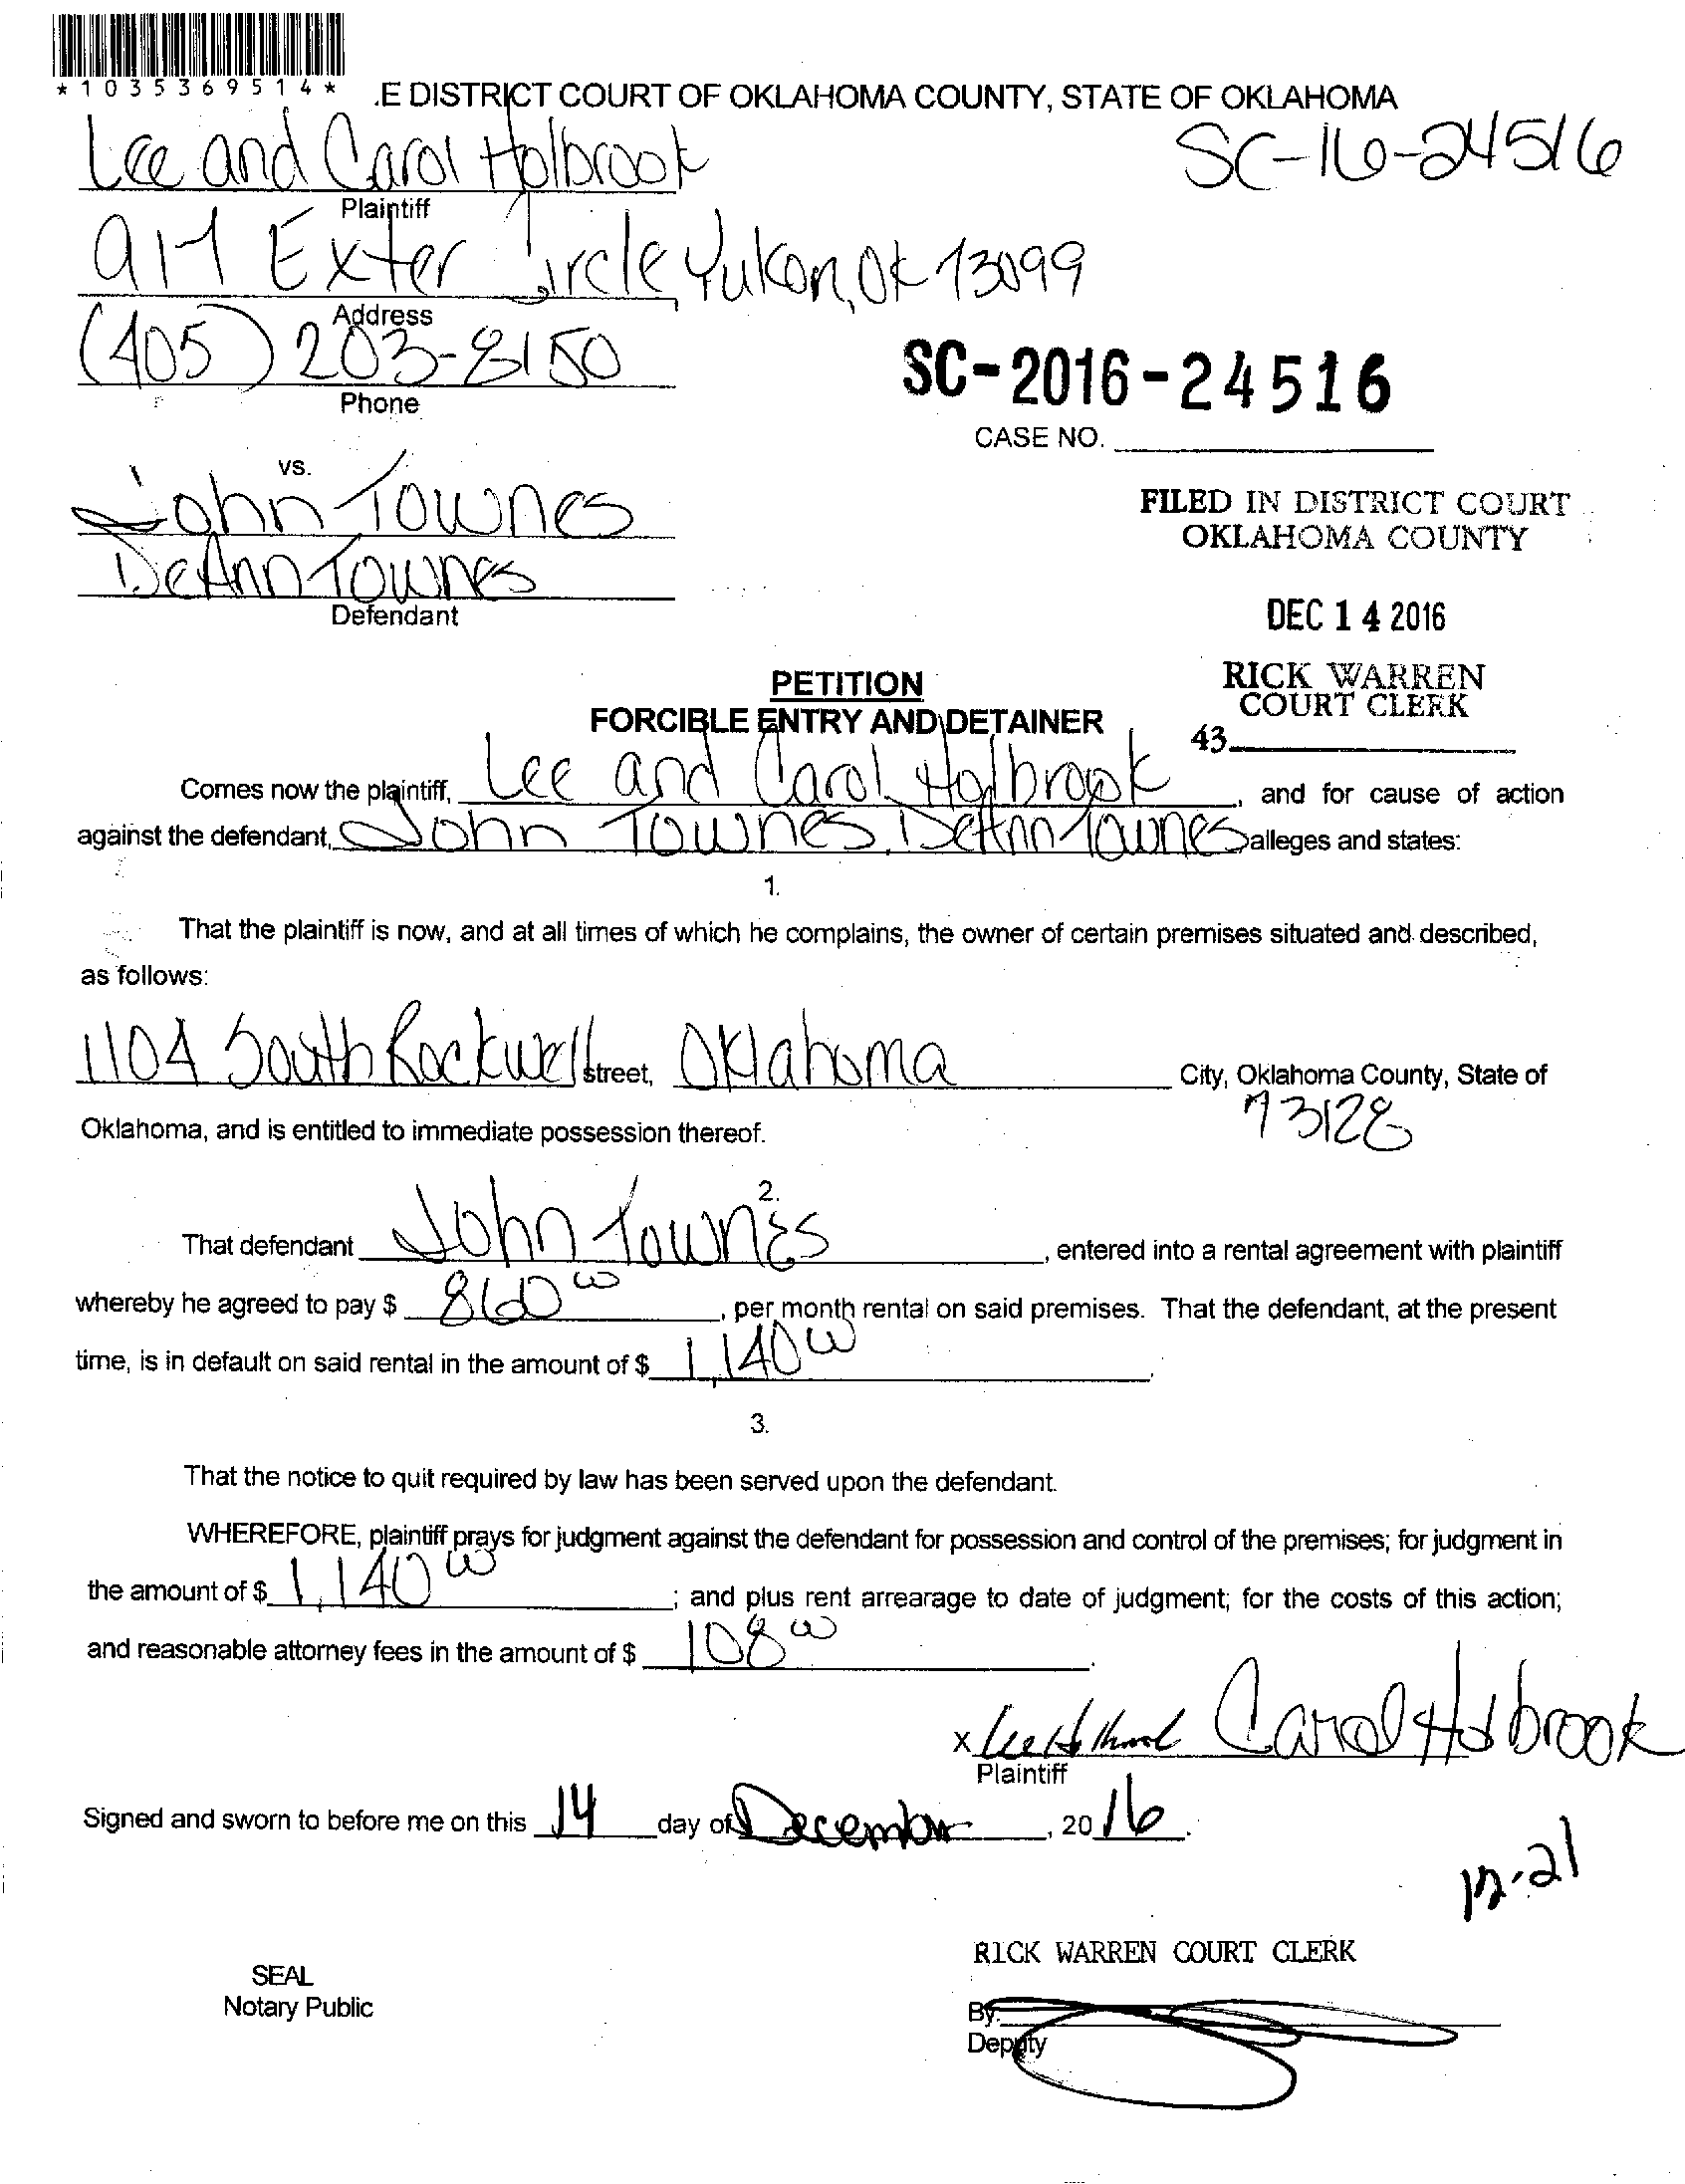 *1035369514*
.E DISTRICT COURT OF OKLAHOMA COUNTY, STATE OF OKLAHOMA
Lee and Carol Holbrook
SC-16-24516
Plaintiff
Exter Circle Yukon, OK 73099
Address
(405) 203-8150
Phone
SC-2016-24516
CASE NO.
vs.
John Townes
DeAnn Townes
Defendant
FILED IN DISTRICT COURT
OKLAHOMA COUNTY
DEC 14 2016
RICK WARREN
COURT CLERK
43
PETITION
FORCIBLE ENTRY AND DETAINER
Comes now the plaintiff, Lee and Carol Holbrook, and for cause of action
against the defendant, John Townes, DeAnn Townes alleges and states:
1.
That the plaintiff is now, and at all times of which he complains, the owner of certain premises situated and described,
as follows:
1104 South Rockwell street, Oklahoma City, Oklahoma County, State of
73128
Oklahoma, and is entitled to immediate possession thereof.
2.
That defendant John Townes, entered into a rental agreement with plaintiff
whereby he agreed to pay $ 860 00, per month rental on said premises. That the defendant, at the present
time, is in default on said rental in the amount of $ 1,140 00.
3.
That the notice to quit required by law has been served upon the defendant.
WHEREFORE, plaintiff prays for judgment against the defendant for possession and control of the premises; for judgment in
the amount of $ 1,140 00; and plus rent arrearage to date of judgment; for the costs of this action;
and reasonable attorney fees in the amount of $ 108 00.
x Lee Holbrook Carol Holbrook
Plaintiff
Signed and sworn to before me on this 14 day of December, 20 16.
12-21
RICK WARREN COURT CLERK
SEAL
Notary Public
By:
Deputy